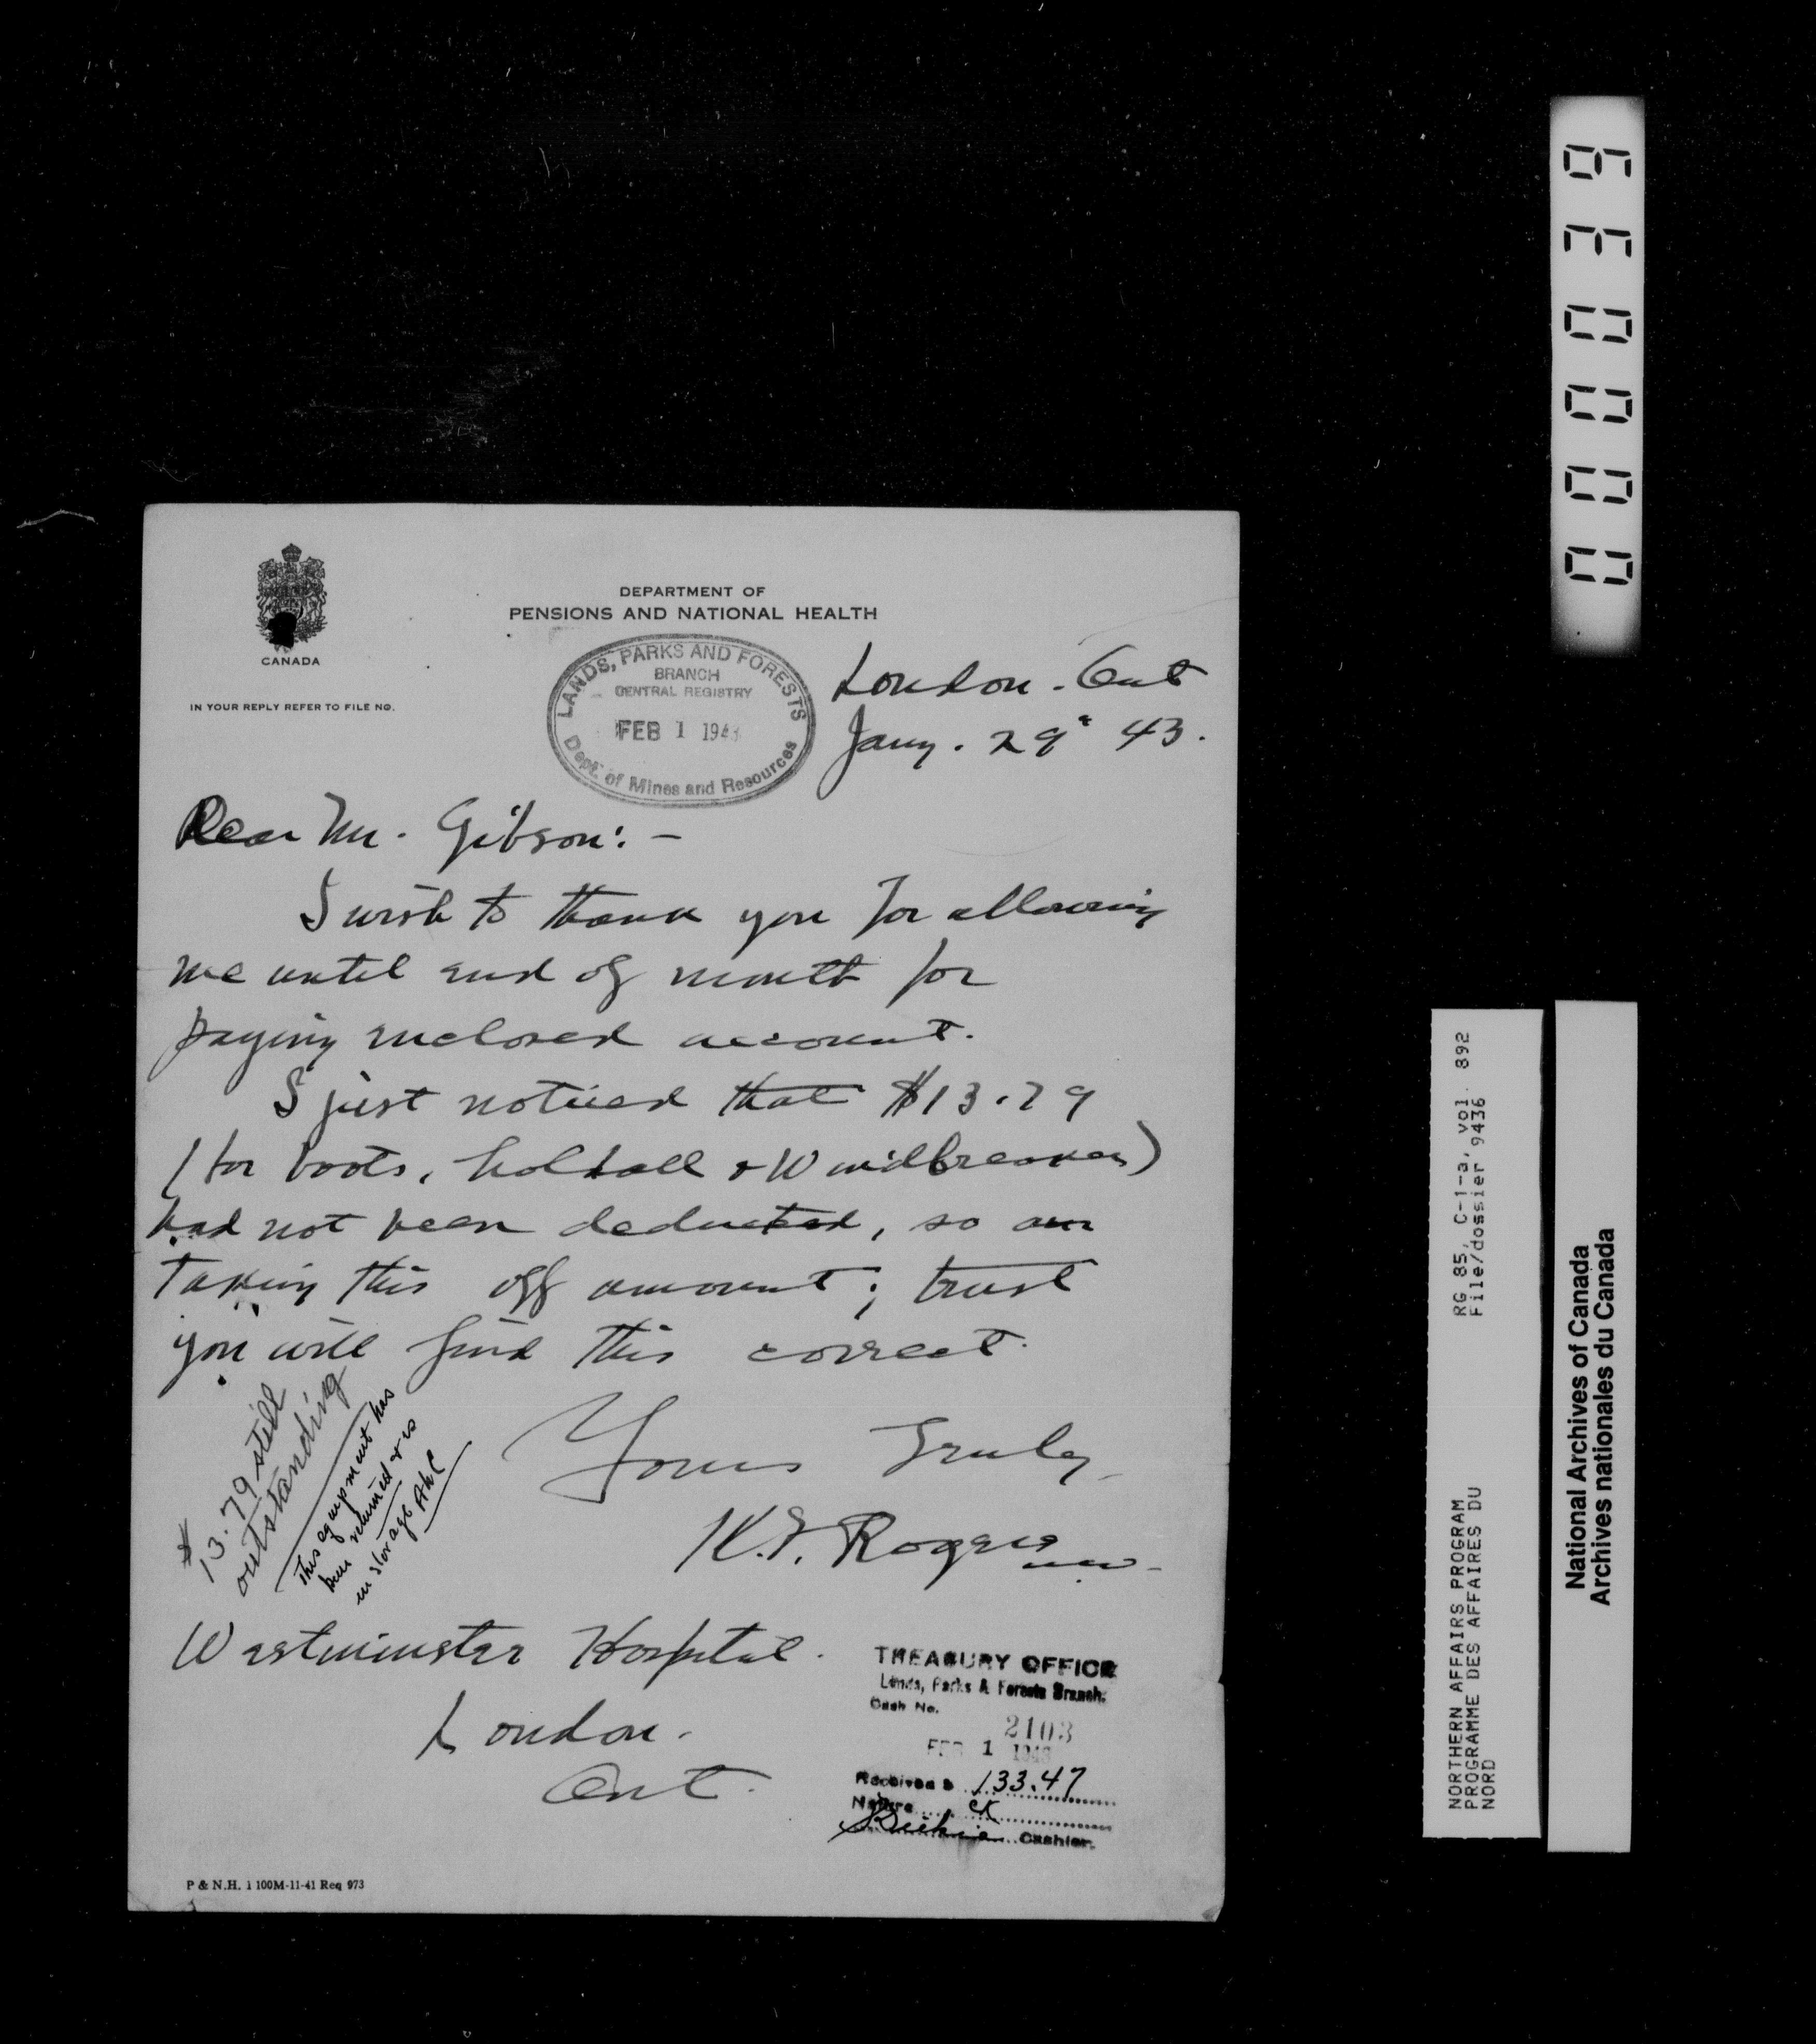 DEPARTMENT OF
PENSIONS AND NATIONAL HEALTH
CANADA
IN YOUR REPLY REFER TO FILE NO.
LANDS, PARKS AND FORESTS
BRANCH
CENTRAL REGISTRY
FEB 1 1943
Dept. of Mines and Resources
London. Ont
Jany. 29" 43.
Dear Mr. Gibson:-
I wish to thank you for allowing
me until end of month for
paying enclosed account.
I just noticed that $13.79
(for boots, holdall & Windbreaker)
had not been deducted, so am
taking this off amount; trust
you will find this correct.
Yours Truly,
Rogers
$
13.79 still
outstanding
This equipment has
been returned & is
in storage
Westminster Hospital.
London.
Ont.
TREASURY OFFICE
Lands, Parks & Forests Branch.
Cash No.
2103
FEB 1 1943
Received $ 133.47
Nature ck
Cashier.
P & N.H. 1 100M-11-41 Req 973
000039
RG 85, C-1-a, vol. 892
File/dossier 9436
NORTHERN AFFAIRS PROGRAM
PROGRAMME DES AFFAIRES DU
NORD
National Archives of Canada
Archives nationales du Canada